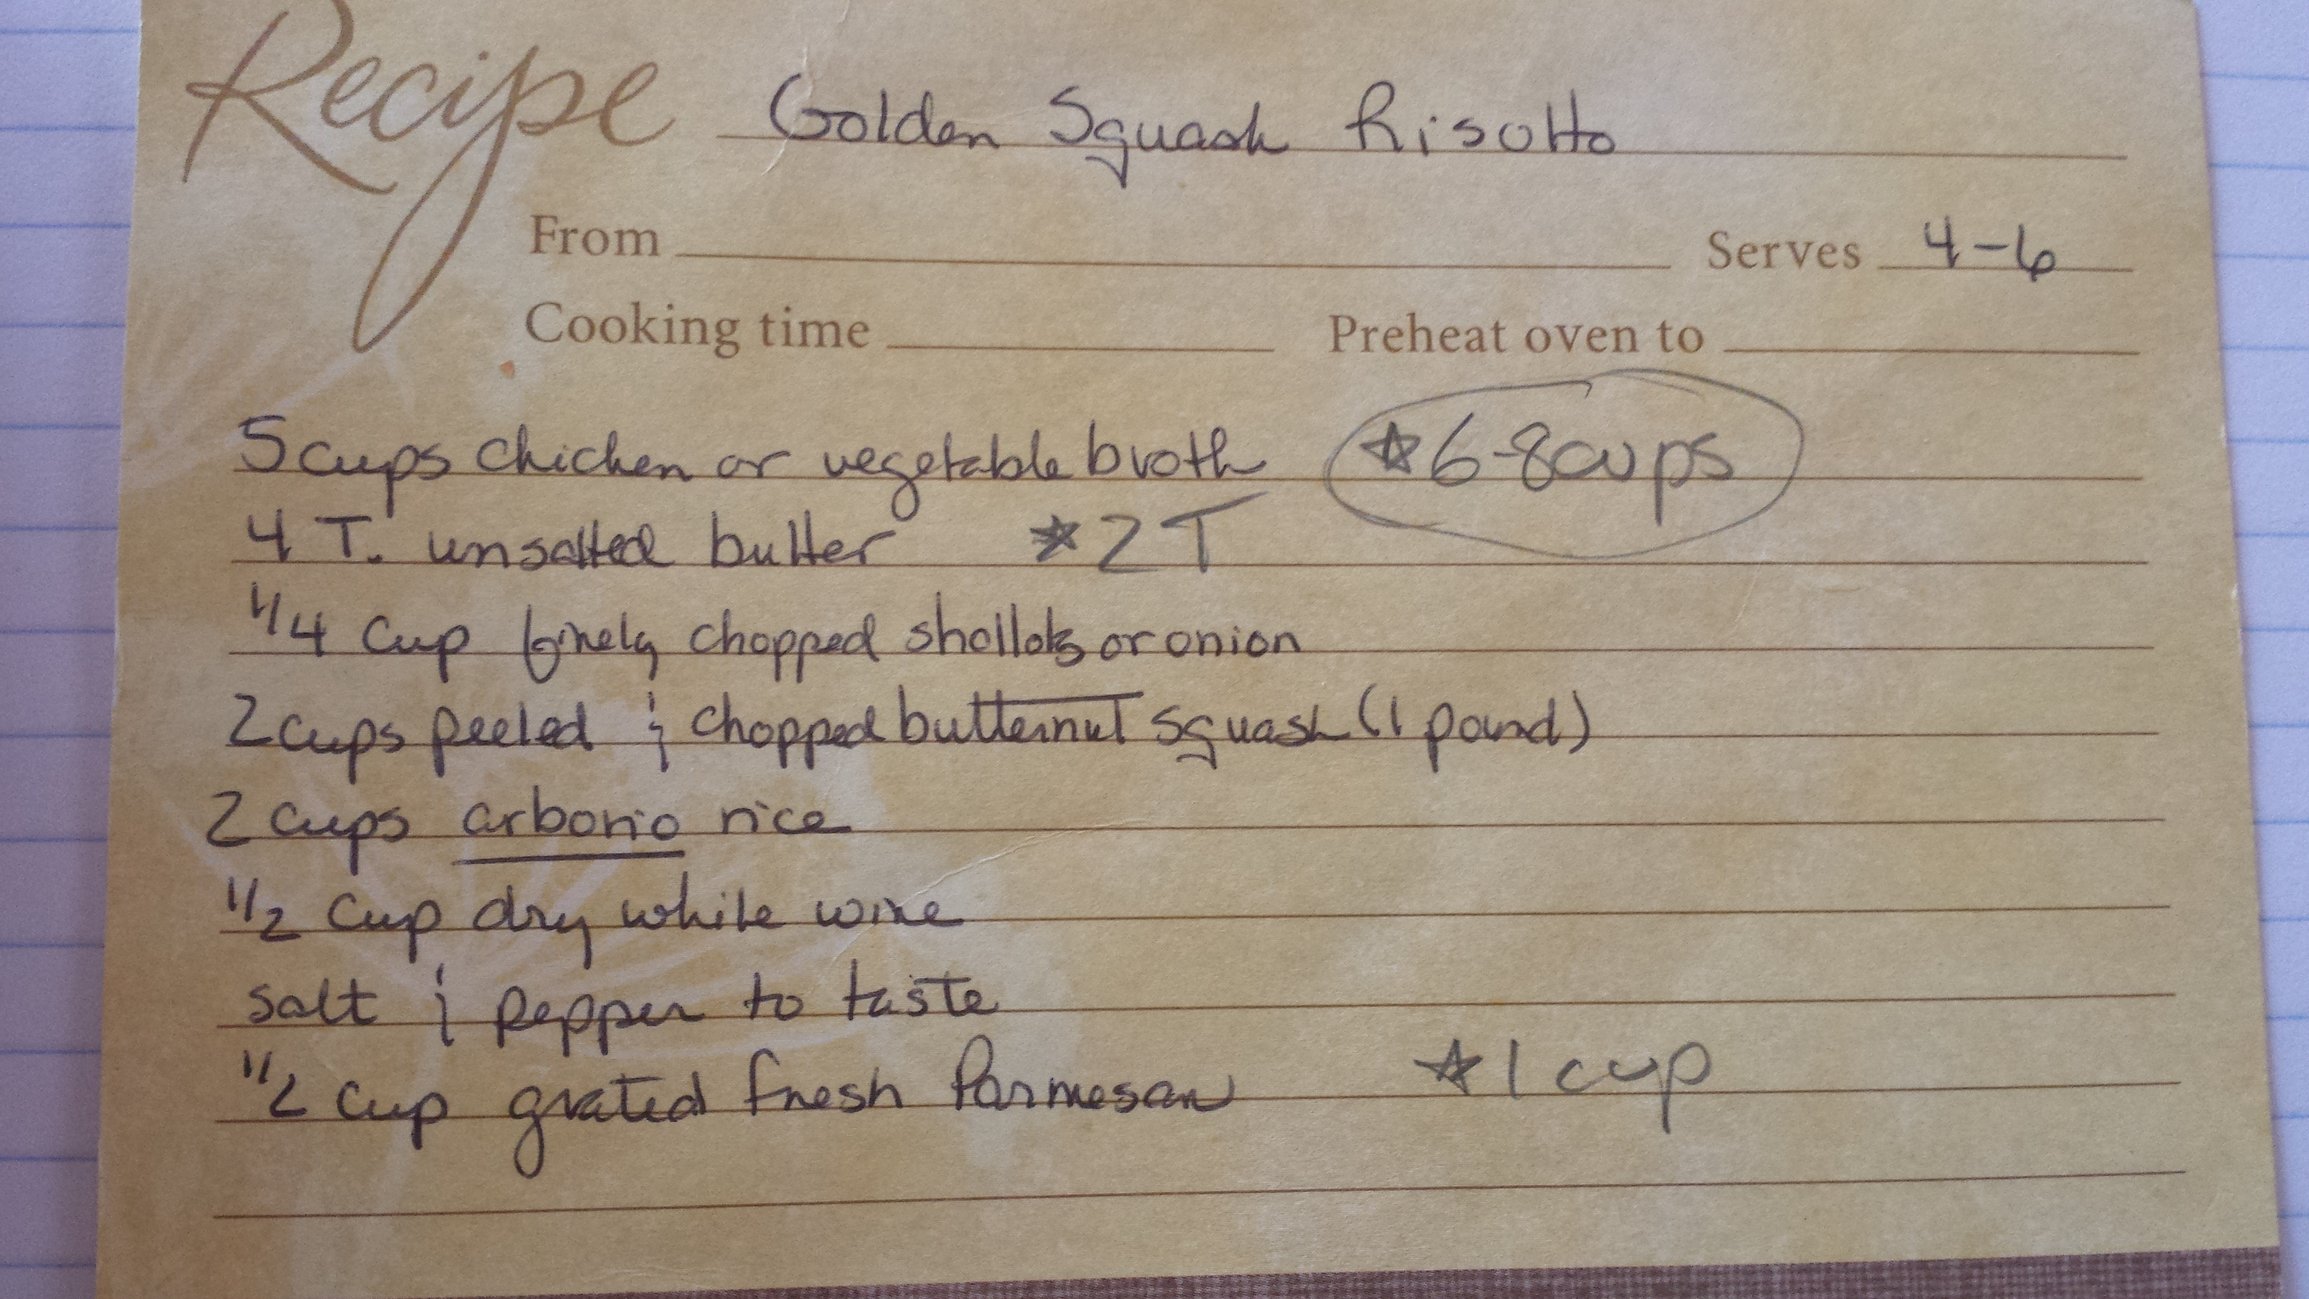 Recipe Golden Squash Risotto
From Serves 4-6
Cooking time Preheat oven to
5 cups chicken or vegetable broth ☆6-8cups
4 T. unsalted butter ☆2T
1/4 cup finely chopped shallots or onion
2 cups peeled & chopped butternut squash (1 pound)
2 cups arborio rice
1/2 cup dry white wine
salt & pepper to taste
1/2 cup grated fresh Parmesan ☆1 cup